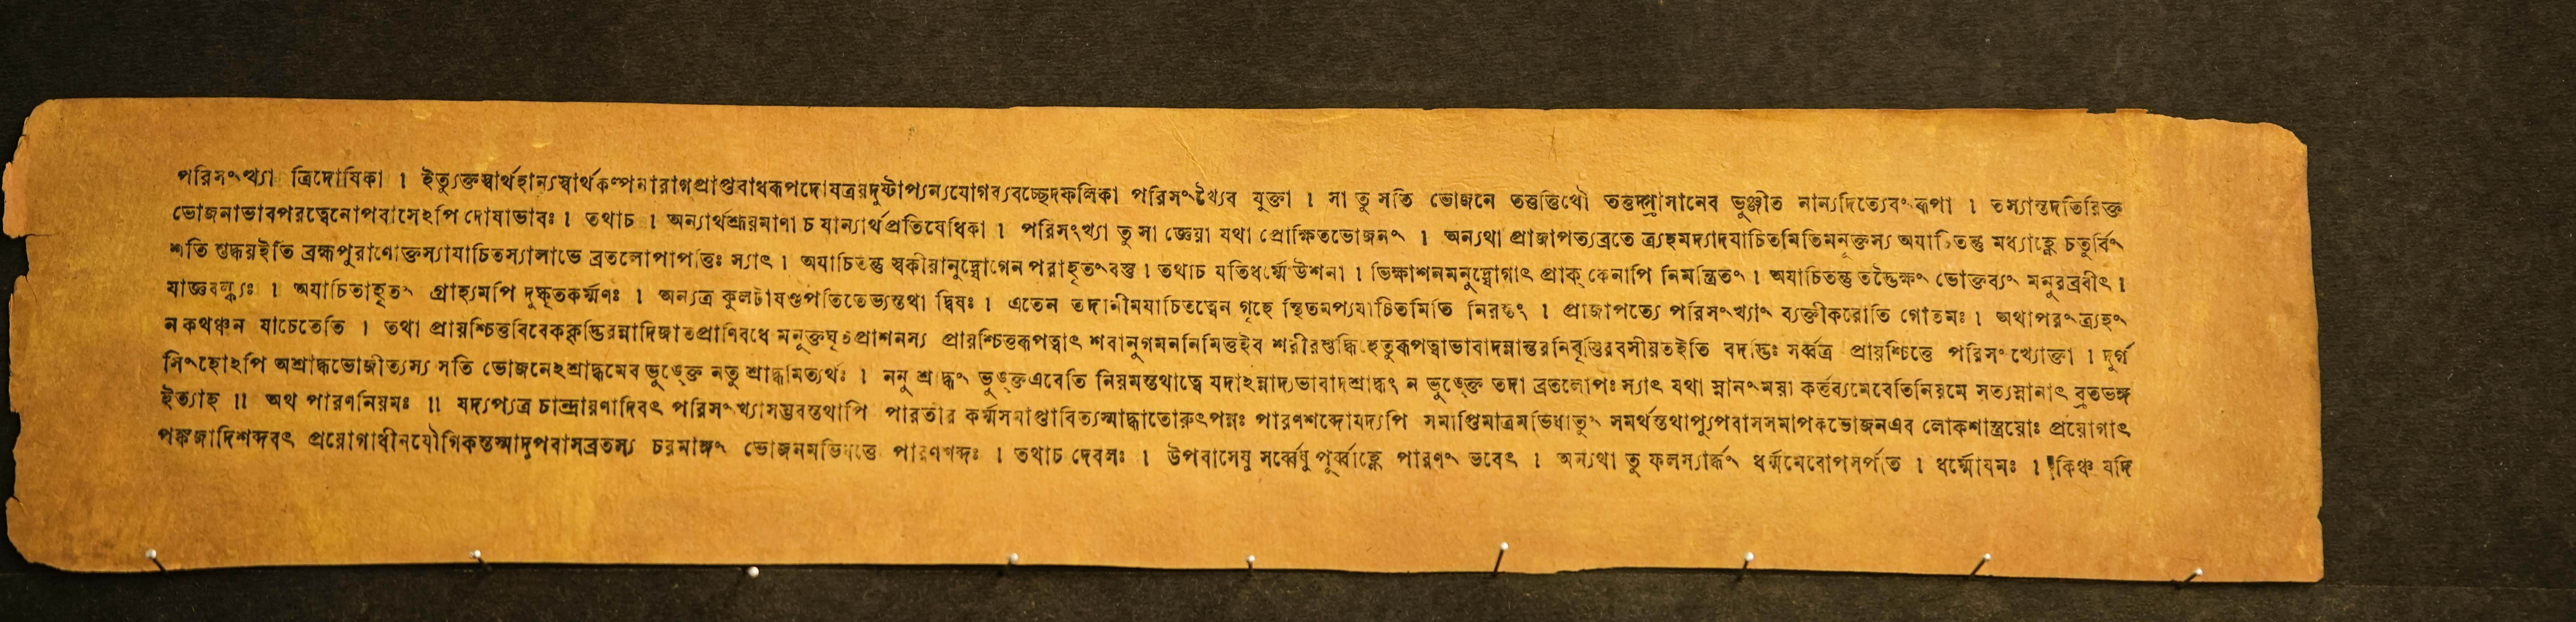 পরিসংখ্যা ত্রিদোষিকা । ইত্যুক্তস্বার্থহান্যস্বার্থকল্পনারাগপ্রাপ্তবাধরূপদোষত্রয়দুষ্টাপ্যন্যযোগব্যবচ্ছেদফলিকা পরিসংখ্যৈব যুক্তা । সা তু সতি ভোজনে তত্তত্তিথৌ তত্তদ্গ্রাসানেব ভুঞ্জীত নান্যদিত্যেবংরূপা । তস্যাস্তদতিরিক্ত
ভোজনাভাবপরত্বেনোপবাসেঽপি দোষাভাবঃ । তথাচ । অন্যার্থশ্রূয়মাণা চ যান্যার্থপ্রতিষেধিকা । পরিসংখ্যা তু সা জ্ঞেয়া যথা প্রোক্ষিতভোজনং । অন্যথা প্রাজাপত্যব্রতে ত্র্যহমদ্যাদযাচিতমিতিমনূক্তস্য অযাচিতন্তু মধ্যাহ্নে চতুর্বিং
শতি শুদ্ধয়ইতি ব্রহ্মপুরাণোক্তস্যাযাচিতস্যালাভে ব্রতলোপাপত্তিঃ স্যাৎ । অযাচিতন্তু স্বকীয়ানুদ্যোগেন পরাহৃতংবস্তু । তথাচ যতিধর্ম্মেউশনা । ভিক্ষাশনমনুদ্যোগাৎ প্রাক্ কেনাপি নিমন্ত্রিতং । অযাচিতন্তু তদ্ভৈক্ষং ভোক্তব্যং মনুরব্রবীৎ ।
যাজ্ঞবল্ক্যঃ । অযাচিতাহৃতং গ্রাহ্যমপি দুষ্কৃতকর্ম্মণঃ । অন্যত্র কুলটাষণ্ডপতিতেভ্যস্তথা দ্বিষঃ । এতেন তদানীমযাচিতত্বেন গৃহে স্থিতমপ্যযাচিতমিতি নিরস্তং । প্রাজাপত্যে পরিসংখ্যাং ব্যক্তীকরোতি গোতমঃ । অথাপরংত্র্যহং
ন কথঞ্চন যাচেতেতি । তথা প্রায়শ্চিত্তবিবেককৃদ্ভিরন্নাদিজাতপ্রাণিবধে মনূক্তঘৃতপ্রাশনস্য প্রায়শ্চিত্তরূপত্বাৎ শবানুগমননিমিত্তইব শরীরশুদ্ধিহেতুরূপত্বাভাবাদন্নান্তরনিবৃত্তিরবসীয়তইতি বদদ্ভিঃ সর্ব্বত্র প্রায়শ্চিত্তে পরিসংখ্যোক্তা । দুর্গ
সিংহোঽপি অশ্রাদ্ধভোজীত্যস্য সতি ভোজনেঽশ্রাদ্ধমেব ভুঙ্ক্তে নতু শ্রাদ্ধমিত্যর্থঃ । ননু শ্রাদ্ধং ভুঙ্ক্তএবেতি নিয়মস্তথাত্বে যদাঽন্নাদ্যভাবাদশ্রাদ্ধং ন ভুঙ্ক্তে তদা ব্রতলোপঃ স্যাৎ যথা স্নানংময়া কর্ত্তব্যমেবেতিনিয়মে সত্যস্নানাৎ ব্রতভঙ্গ
ইত্যাহ ॥ অথ পারণনিয়মঃ ॥ যদ্যপ্যত্র চান্দ্রায়ণাদিবৎ পরিসংখ্যাসম্ভবস্তথাপি পারতীর কর্ম্মসমাপ্তাবিত্যস্মাদ্ধাতোরুৎপন্নঃ পারণশব্দোযদ্যপি সমাপ্তিমাত্রমভিধাতুং সমর্থস্তথাপ্যুপবাসসমাপকভোজনএব লোকশাস্ত্রয়োঃ প্রয়োগাৎ
পঙ্কজাদিশব্দবৎ প্রয়োগাধীনযৌগিকস্তস্মাদুপবাসব্রতস্য চরমাঙ্গং ভোজনমভিধত্তে পারণশব্দঃ । তথাচ দেবলঃ । উপবাসেষু সর্ব্বেষু পূর্ব্বাহ্ণে পারণং ভবেৎ । অন্যথা তু ফলস্যার্দ্ধং ধর্ম্মমেবোপসর্পতি । ধর্ম্মোযমঃ । কিঞ্চ যদি